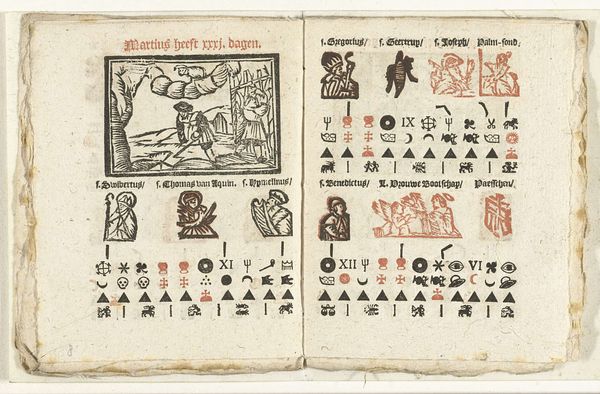 Martius heeft xxxj. dagen.
s. Swibertus/ s. Thomas van Aquin.
XI
s. Gregorius/ s. Geertruy/ s. Joseph/ Palm-sond:
IX
s. Benedictus/ L. Vrouwe Bootschap/ Paesschen/
XII VI